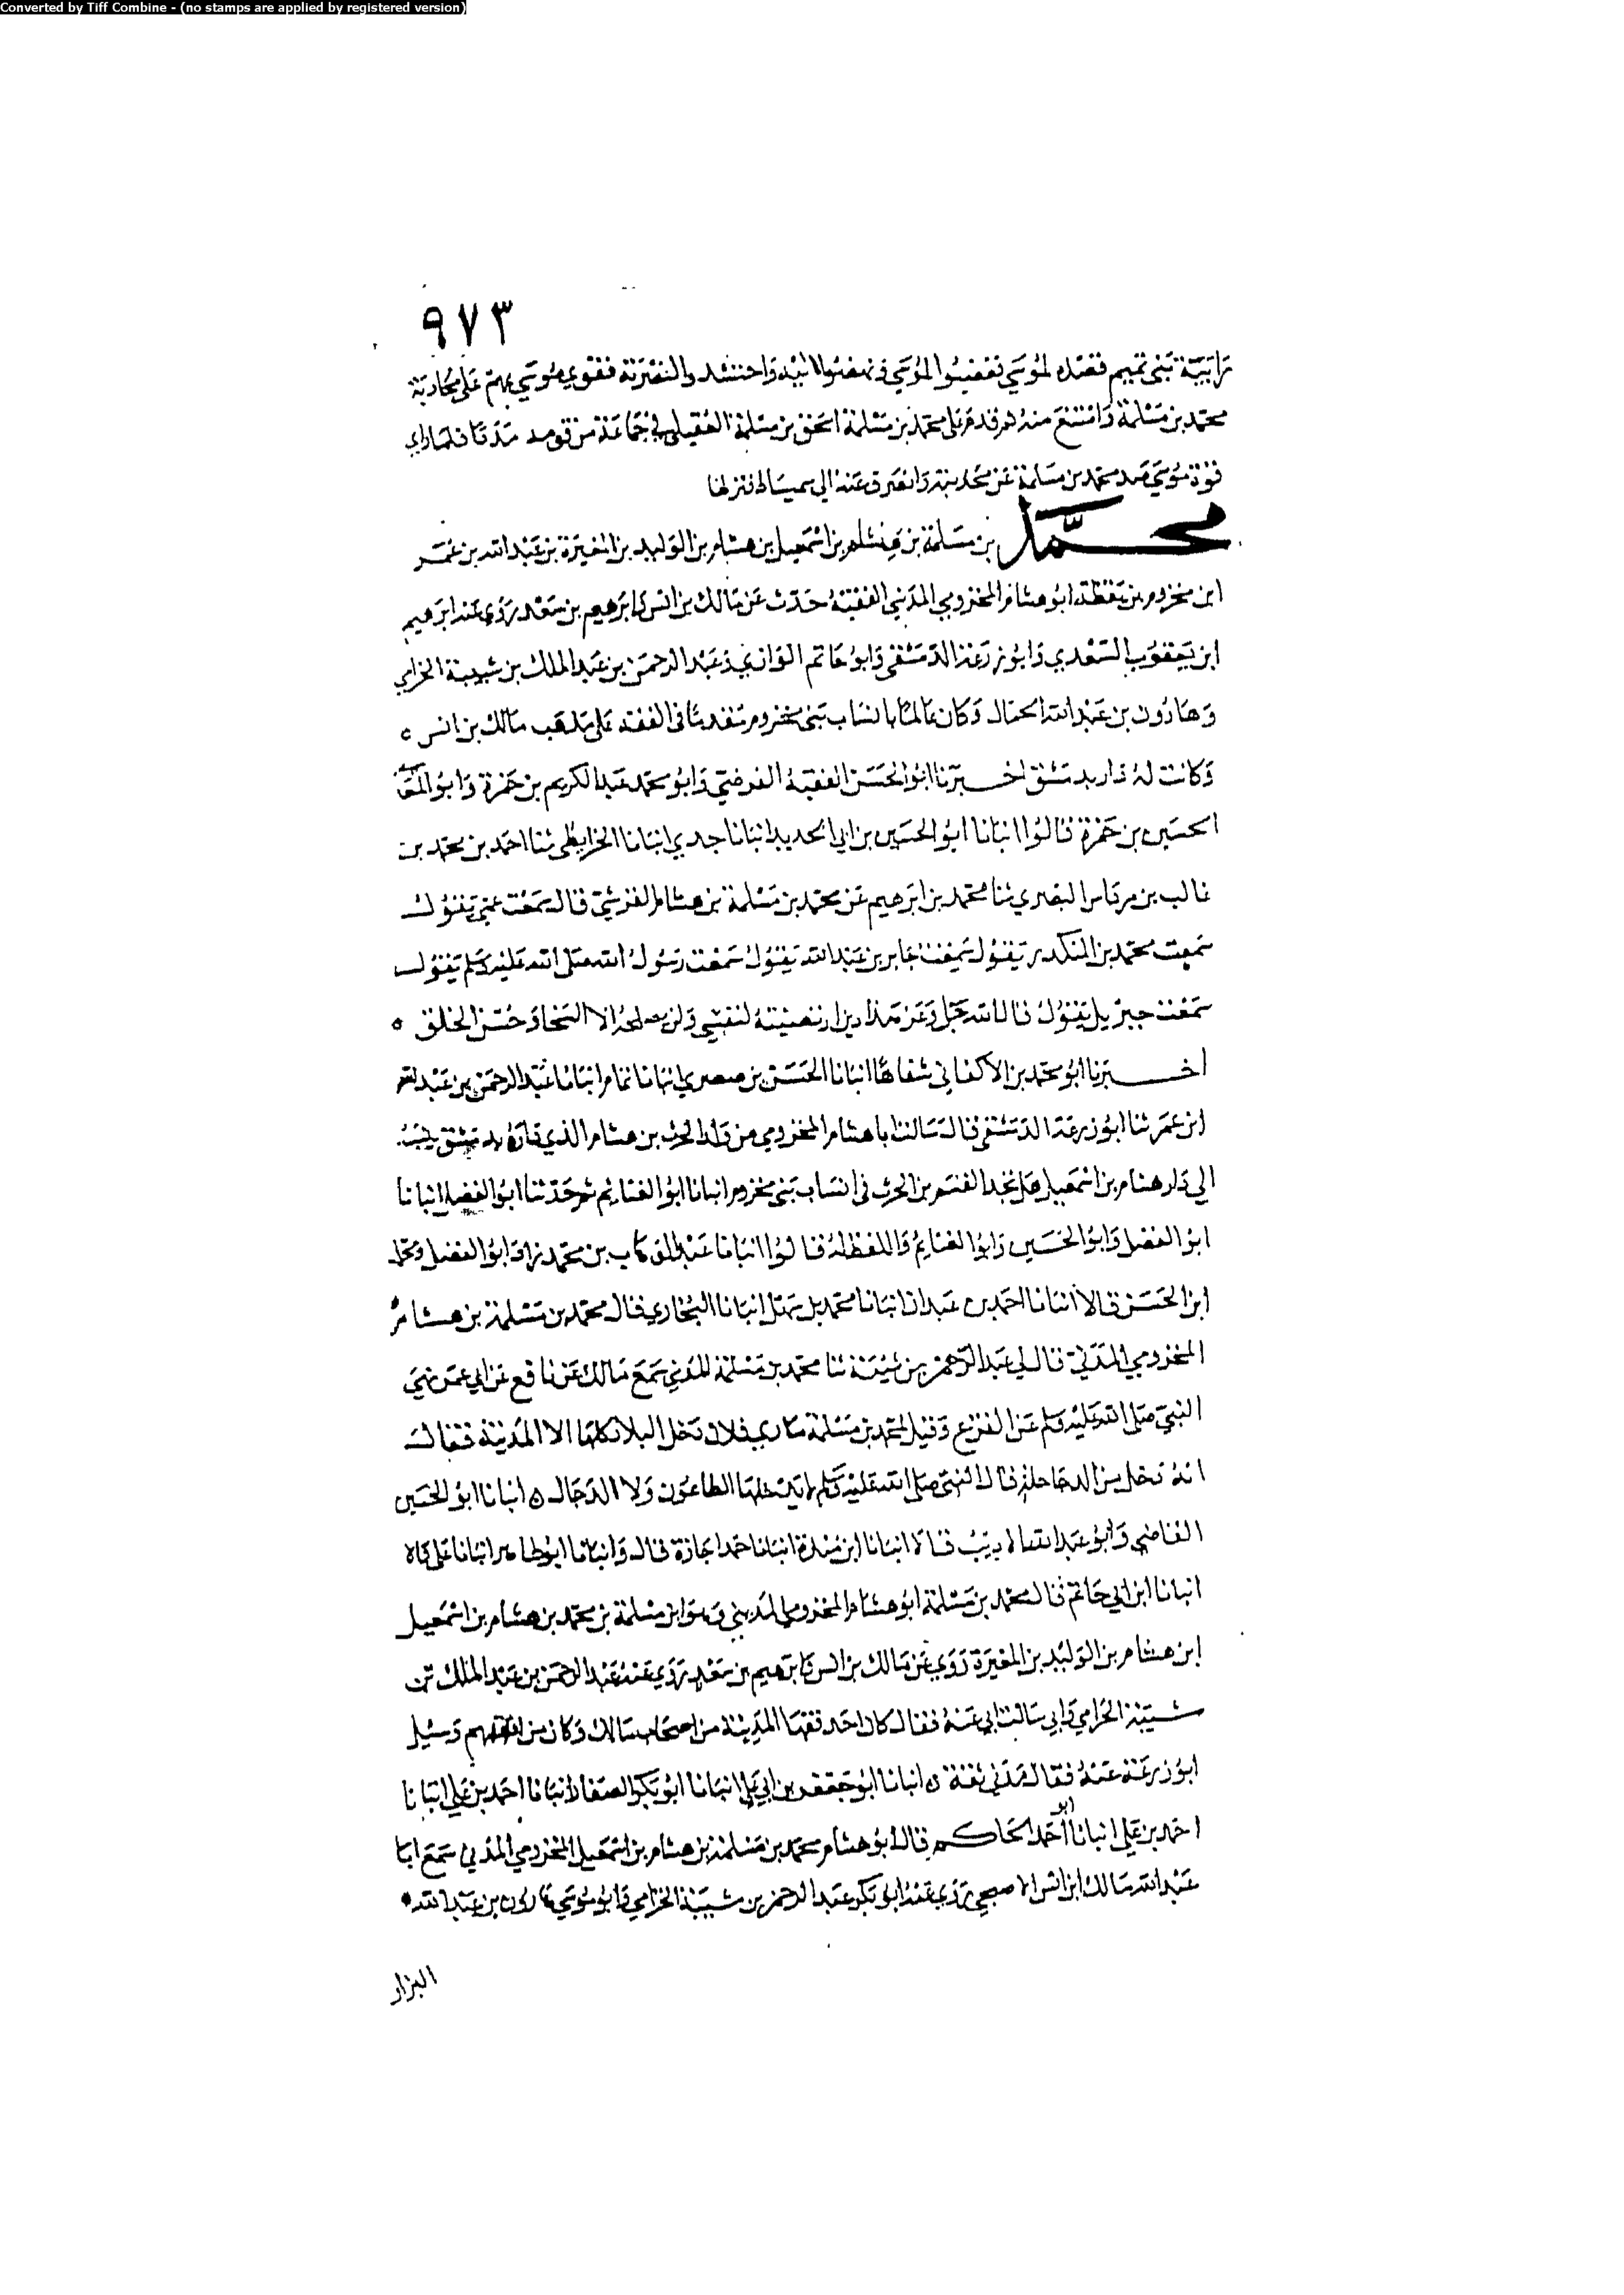 Converted by Tiff Combine - (no stamps are applied by registered version)
٩٧٣
رابية بني تميم فقصد لموسى فغضبوا لموسى ونهضوا اليه واحتشدوا لنصرته فقوي موسى بهم على محاربة
محمد بن مسلمة وامتنع منه ثم قدم على محمد بن مسلمة اسحق بن مسلمة العقيلي في جماعة من قومه مددا فلما راى
قوة موسى صد محمد بن مسلمة عن محاربته وانصرف عنه الى سميساط فنزلها
محمد بن مسلمة بن هشام بن اسمعيل بن هشام بن الوليد بن المغيرة بن عبد الله بن عمر
ابن مخزوم بن يقظة ابو هشام المخزومي المدني الفقيه حدث عن مالك بن انس وابرهيم بن سعد روى عنه ابرهيم
ابن يعقوب السعدي وابو زرعة الدمشقي وابو حاتم الرازي وعبد الرحمن بن عبد الملك بن شيبة الحزامي
وهارون بن عبد الله الحمال وكان عالما بانساب بني مخزوم متقدما في الفقه على مذهب مالك بن انس ه
وكانت له دار بدمشق اخبرنا ابو الحسن الفقيه الفرضي وابو محمد عبد الكريم بن حمزة وابو المعالي
الحسين بن حمزة قالوا انبانا ابو الحسين بن ابي الحديد انبانا جدي انبانا الخرايطي ثنا احمد بن محمد بن
غالب بن مرداس البصري ثنا محمد بن ابرهيم عن محمد بن مسلمة بن هشام القرشي قال سمعت عمي يقول
سمعت محمد بن المنكدر يقول سمعت جابر بن عبد الله يقول سمعت رسول الله صلى الله عليه وسلم يقول
سمعت جبريل يقول قال الله عز وجل هذا دين ارتضيته لنفسي ولن يصلحه الا السخا وحسن الخلق ه
اخبرنا ابو محمد بن الاكفاني شفاها انبانا الحسن بن صصرى انبانا تمام انبانا عبد الرحمن بن عبد الله
ابن عمر ثنا ابو زرعة الدمشقي قال سالت ابا هشام المخزومي من ولد الحرث بن هشام الذي داره بدمشق ينسب
الى دار هشام بن اسمعيل هل تجد القسم بن الحرث في انساب بني مخزوم انبانا ابو الغنايم ثم حدثنا ابو الفضل انبانا
ابو الفضل وابو الحسين وابو الغنايم واللفظ له قالوا انبانا عبد الوهاب بن محمد زاد ابو الفضل ومحمد
ابن الحسن قالا انبانا احمد بن عبدان انبانا محمد بن سهل انبانا البخاري قال محمد بن مسلمة بن هشام
المخزومي المدني قال لي عبد الرحمن بن شيبة ثنا محمد بن مسلمة المدني سمع مالك عن نافع عن ابي عمر نهى
النبي صلى الله عليه وسلم عن القزع وقيل لمحمد بن مسلمة ما راي فلان دخل البلاد كلها الا المدينة فقال
انه دخل من الدجاجلة قال النبي صلى الله عليه وسلم لا يدخلها الطاعون ولا الدجال ه انبانا ابو الحسين
القاضي وابو عبد الله الاديب قالا انبانا ابن مندة انبانا حمد اجازة قال وانبانا ابو طاهر انبانا علي قالا
انبانا ابن ابي حاتم قال محمد بن مسلمة ابو هشام المخزومي المديني وهو ابن مسلمة بن محمد بن هشام بن اسمعيل
ابن هشام بن الوليد بن المغيرة روى عن مالك بن انس وابرهيم بن سعد روى عنه عبد الرحمن بن عبد الملك بن
شيبة الحزامي وابي سالت ابي عنه فقال كان احد فقها المدينة من اصحاب مالك وكان من افقههم وسئل
ابو زرعة عنه فقال مدني ثقة ه انبانا ابو جعفر بن ابي علي انبانا ابو بكر الصفار انبانا احمد بن علي انبانا
احمد بن علي انبانا ابو احمد الحاكم قال ابو هشام محمد بن مسلمة بن هشام بن اسمعيل المخزومي المدني سمع ابا
عبد الله مالك ابن انس الاصبحي روى عنه ابو بكر عبد الرحمن بن شيبة الحزامي وابو موسى هارون بن عبد الله
البزار